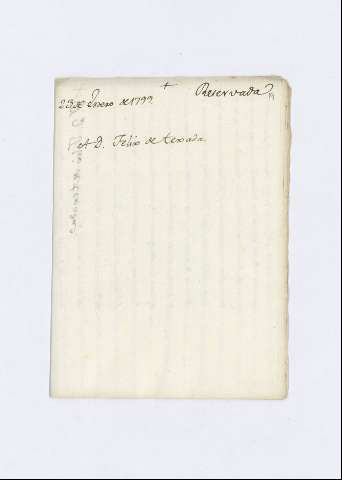 +
23 de Enero de 1799
Reservada
A D. Felix de texada